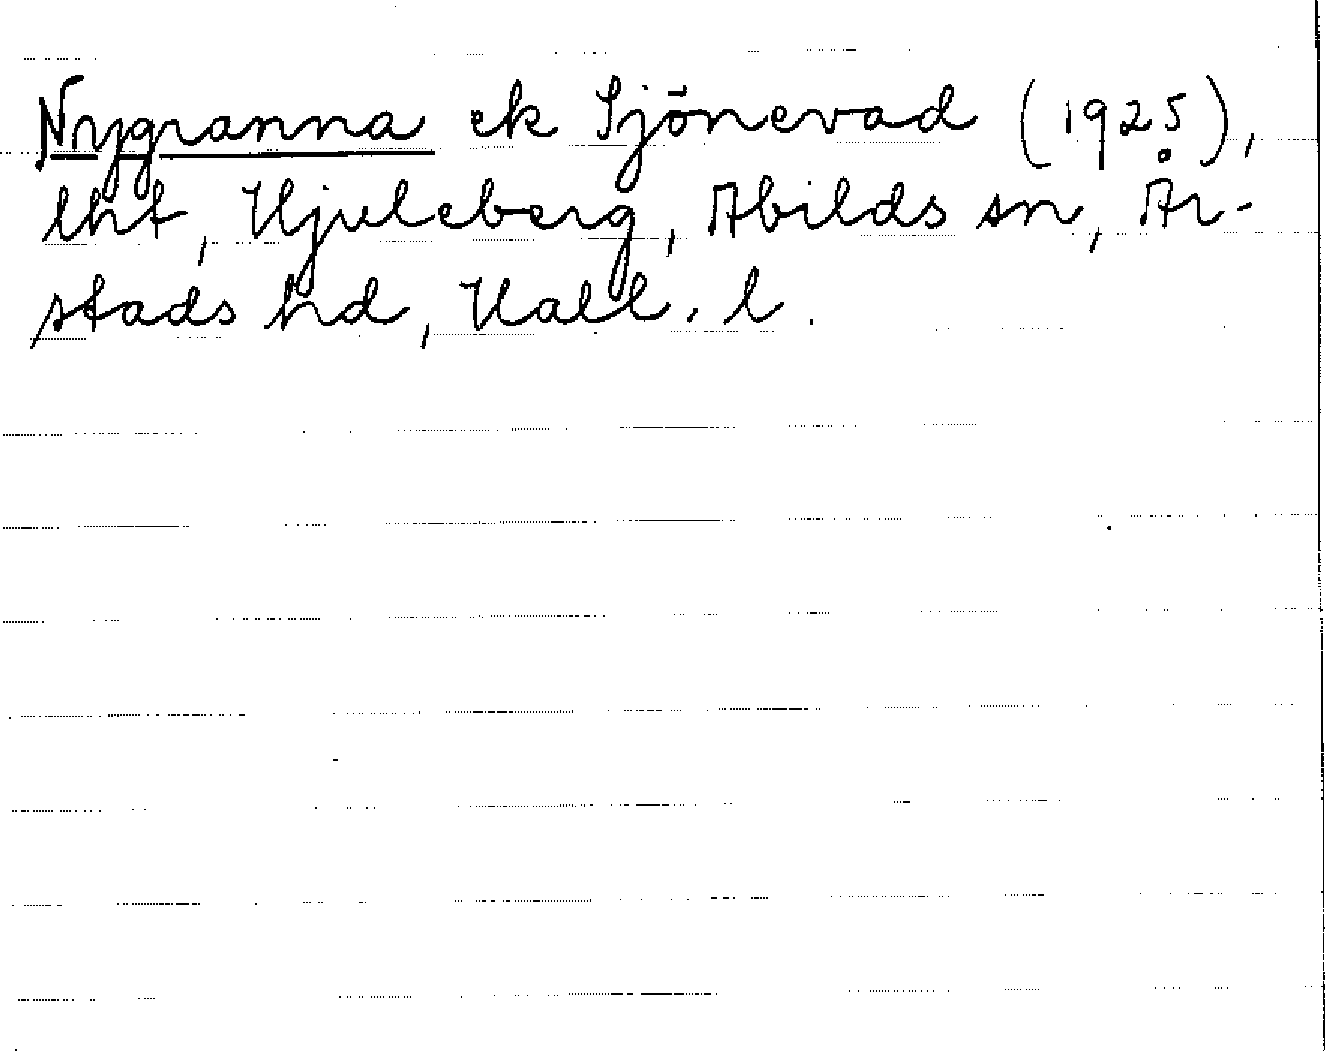 Nygranna ek Sjönevad (1925),
lht, Hjuleberg, Abilds sn, År-
stads hd, Hall. l.